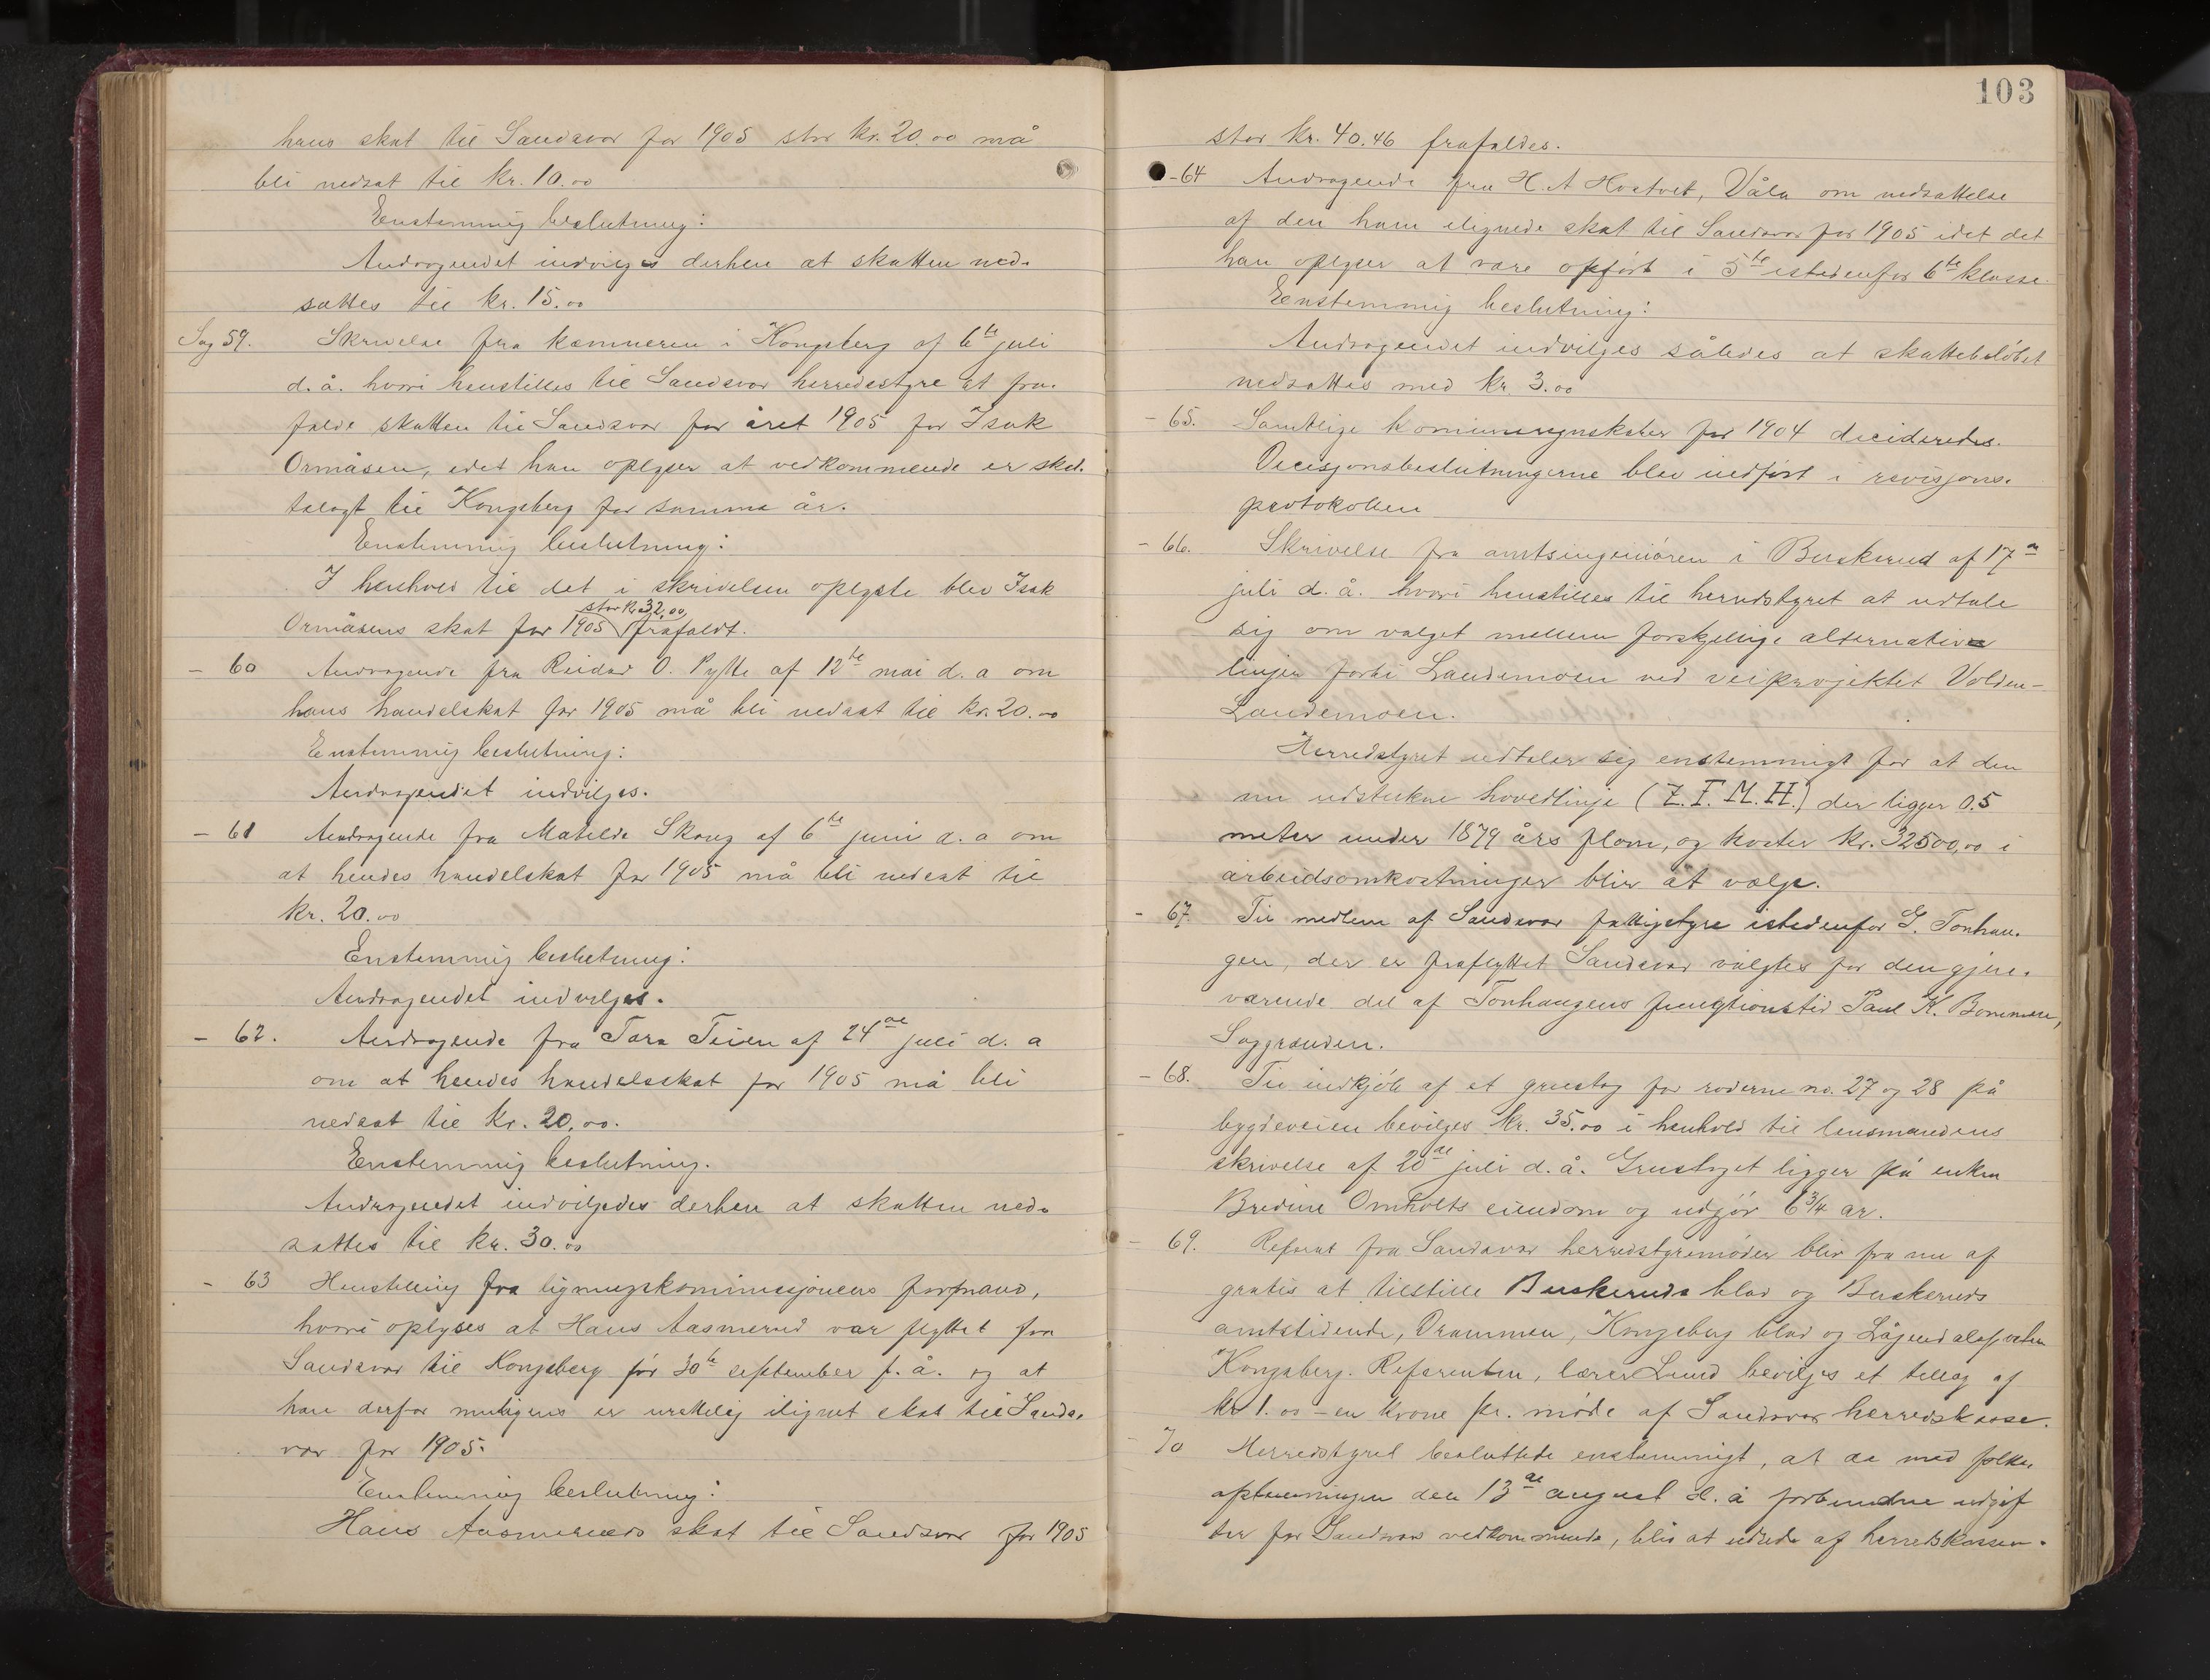 hans skat til Sandsvær for 1905 stor kr. 20.00 må
bli nedsat til kr. 10.00
Enstemmig beslutning:
Andragendet indvilges derhen at skatten ned-
sættes til kr. 15.00
Sag 59. Skrivelse fra kæmneren i Kongsberg af 6te juli
d. å. hvori henstilles til Sandsvær herredsstyre at fra-
falde skatten til Sandsvær for året 1905 for Isak
Ormåsen, idet han oplyser at vedkommende er skat-
telagt til Kongsberg for samme år.
Enstemmig beslutning:
I henhold til det i skrivelsen oplyste blev Isak
stor kr. 32.00
Ormåsens skat for 1905 frafaldt.
- 60 Andragende fra Reidar O. Pytte af 12te mai d. a om
hans handelskat for 1905 må bli nedsat til kr. 20.00
Enstemmig beslutning:
Andragendet indvilges.
- 61 Andragende fra Matilde Skaug af 6te juni d. a om
at hendes handelskat for 1905 må bli nedsat til
kr. 20.00
Enstemmig beslutning:
Andragendet indvilges.
- 62. Andragende fra Tara Teien af 24de juli d. a
om at hendes handelsskat for 1905 må bli
nedsat til kr. 20,00.
Enstemmig beslutning.
Andragendet indvilgedes derhen at skatten ned-
sættes til kr. 30.00
- 63 Henstilling fra ligningskommissjonens formand,
hvori oplyses at Hans Aasmerud var flyttet fra
Sandsvær til Kongsberg før 30te september f. å. og at
han derfor muligens er urettelig ilignet skat til Sands-
vær for 1905.
Enstemmig beslutning:
Hans Aasmeruds skat til Sandsvær for 1905
103
stor kr. 40.46 frafaldes.
- 64 Andragende fra H. A Hostvet, Våla om nedsættelse
af den ham ilignede skat til Sandsvær for 1905 idet det
han oplyser at være opført i 5te istedenfor 6te klasse.
Enstemmig beslutning:
Andragendet indvilges således at skattebeløbet
nedsættes med kr 3.00
- 65. Samtlige kommuneregnskaber for 1904 decideredes.
Decisjonsbeslutningerne blev indført i revisjons-
protokollen
- 66. Skrivelse fra amtsingeniøren i Buskerud af 17de
juli d. å. hvori henstilles til herredstyret at udtale
sig om valget mellem forskjellige alternative
linjer forbi Landemoen ved veiprojektet Volden-
Landemoen.
Herredstyret udtaler sig enstemmigt for at den
nu udstukne hovedlinje (Z. F. M. H.) der ligger 0.5
meter under 1879 års flom, og koster kr. 32500,00 i
arbeidsomkostninger blir at vælge.
- 67. Til medlem af Sandsvær fattigstyre istedenfor G. Tonhau-
gen, der er fraflyttet Sandsvær valgtes for den gjen-
værende del af Tonhaugens fungtionstid Paul K. Bommen,
Saggrenden.
- 68. Til indkjøb af et grustag for roderne no. 27 og 28 på
bygdeveien bevilges kr. 35.00 i henhold til lensmandens
skrivelse af 20de juli d. å. Grustaget ligger på enken
Bredine Omholts eiendom og udgjør 6 3/4 ar.
- 69. Referat fra Sandsvær herredstyremøder blir fra nu af
gratis at tilstille Buskeruds blad og Buskeruds
amtstidende, Drammen, Kongsberg blad og Lågendalsposten
Kongsberg. Referenten, lærer Lund bevilges et tillæg af
kr 1.00 - en krone pr. møde af Sandsvær herredskasse.
- 70 Herredstyret besluttede enstemmigt, at de med folke-
afstemningen den 13de august d. å forbundne udgif
ter for Sandsvær vedkommende, blir at udrede af herredskassen.